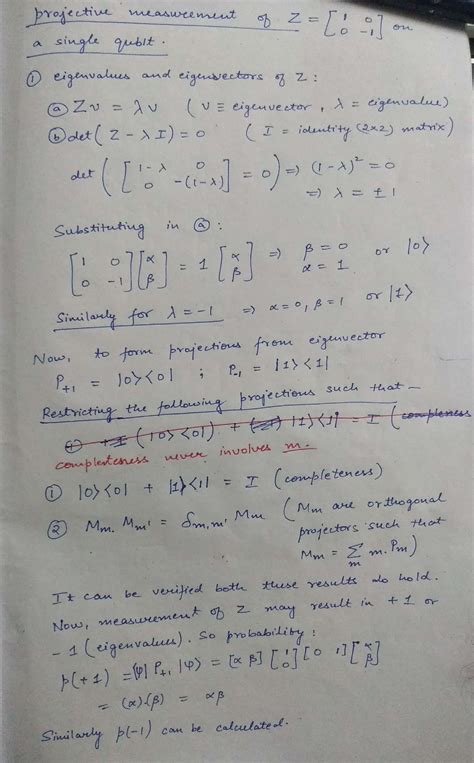 projective measurement of Z = [1 0 0 -1] on
a single qubit.
① eigenvalues and eigenvectors of Z :
ⓐ Zv = λv ( v ≡ eigenvector , λ = eigenvalue)
ⓑ det(Z - λI) = 0 ( I = identity (2x2) matrix)
det ( [1-λ 0 0 -(1-λ)] = 0) ⇒ (1-λ)² = 0
⇒ λ = ±1
Substituting in ⓐ :
[1 0 0 -1] [α β] = 1 [α β] ⇒ β = 0 α = 1 or |0>
Similarly for λ = -1 ⇒ α = 0, β = 1 or |1>
Now, to form projections from eigenvector
P+1 = |0><0| ; P-1 = |1><1|
Restricting the following projections such that -
① +1 (|0><0|) + (-1) |1><1| = I (completeness
completeness never involves m.
① |0><0| + |1><1| = I (completeness)
② Mm. Mm' = δm,m' Mm ( Mm are orthogonal
projectors such that
Mm = Σm m.Pm)
It can be verified both these results do hold.
Now, measurement of Z may result in +1 or
-1 (eigenvalues). So probability :
p(+1) = <ψ| P+1 |ψ> = [α β] [1 0] [0 1] [α β]
= (α).(β) = αβ
Similarly p(-1) can be calculated.